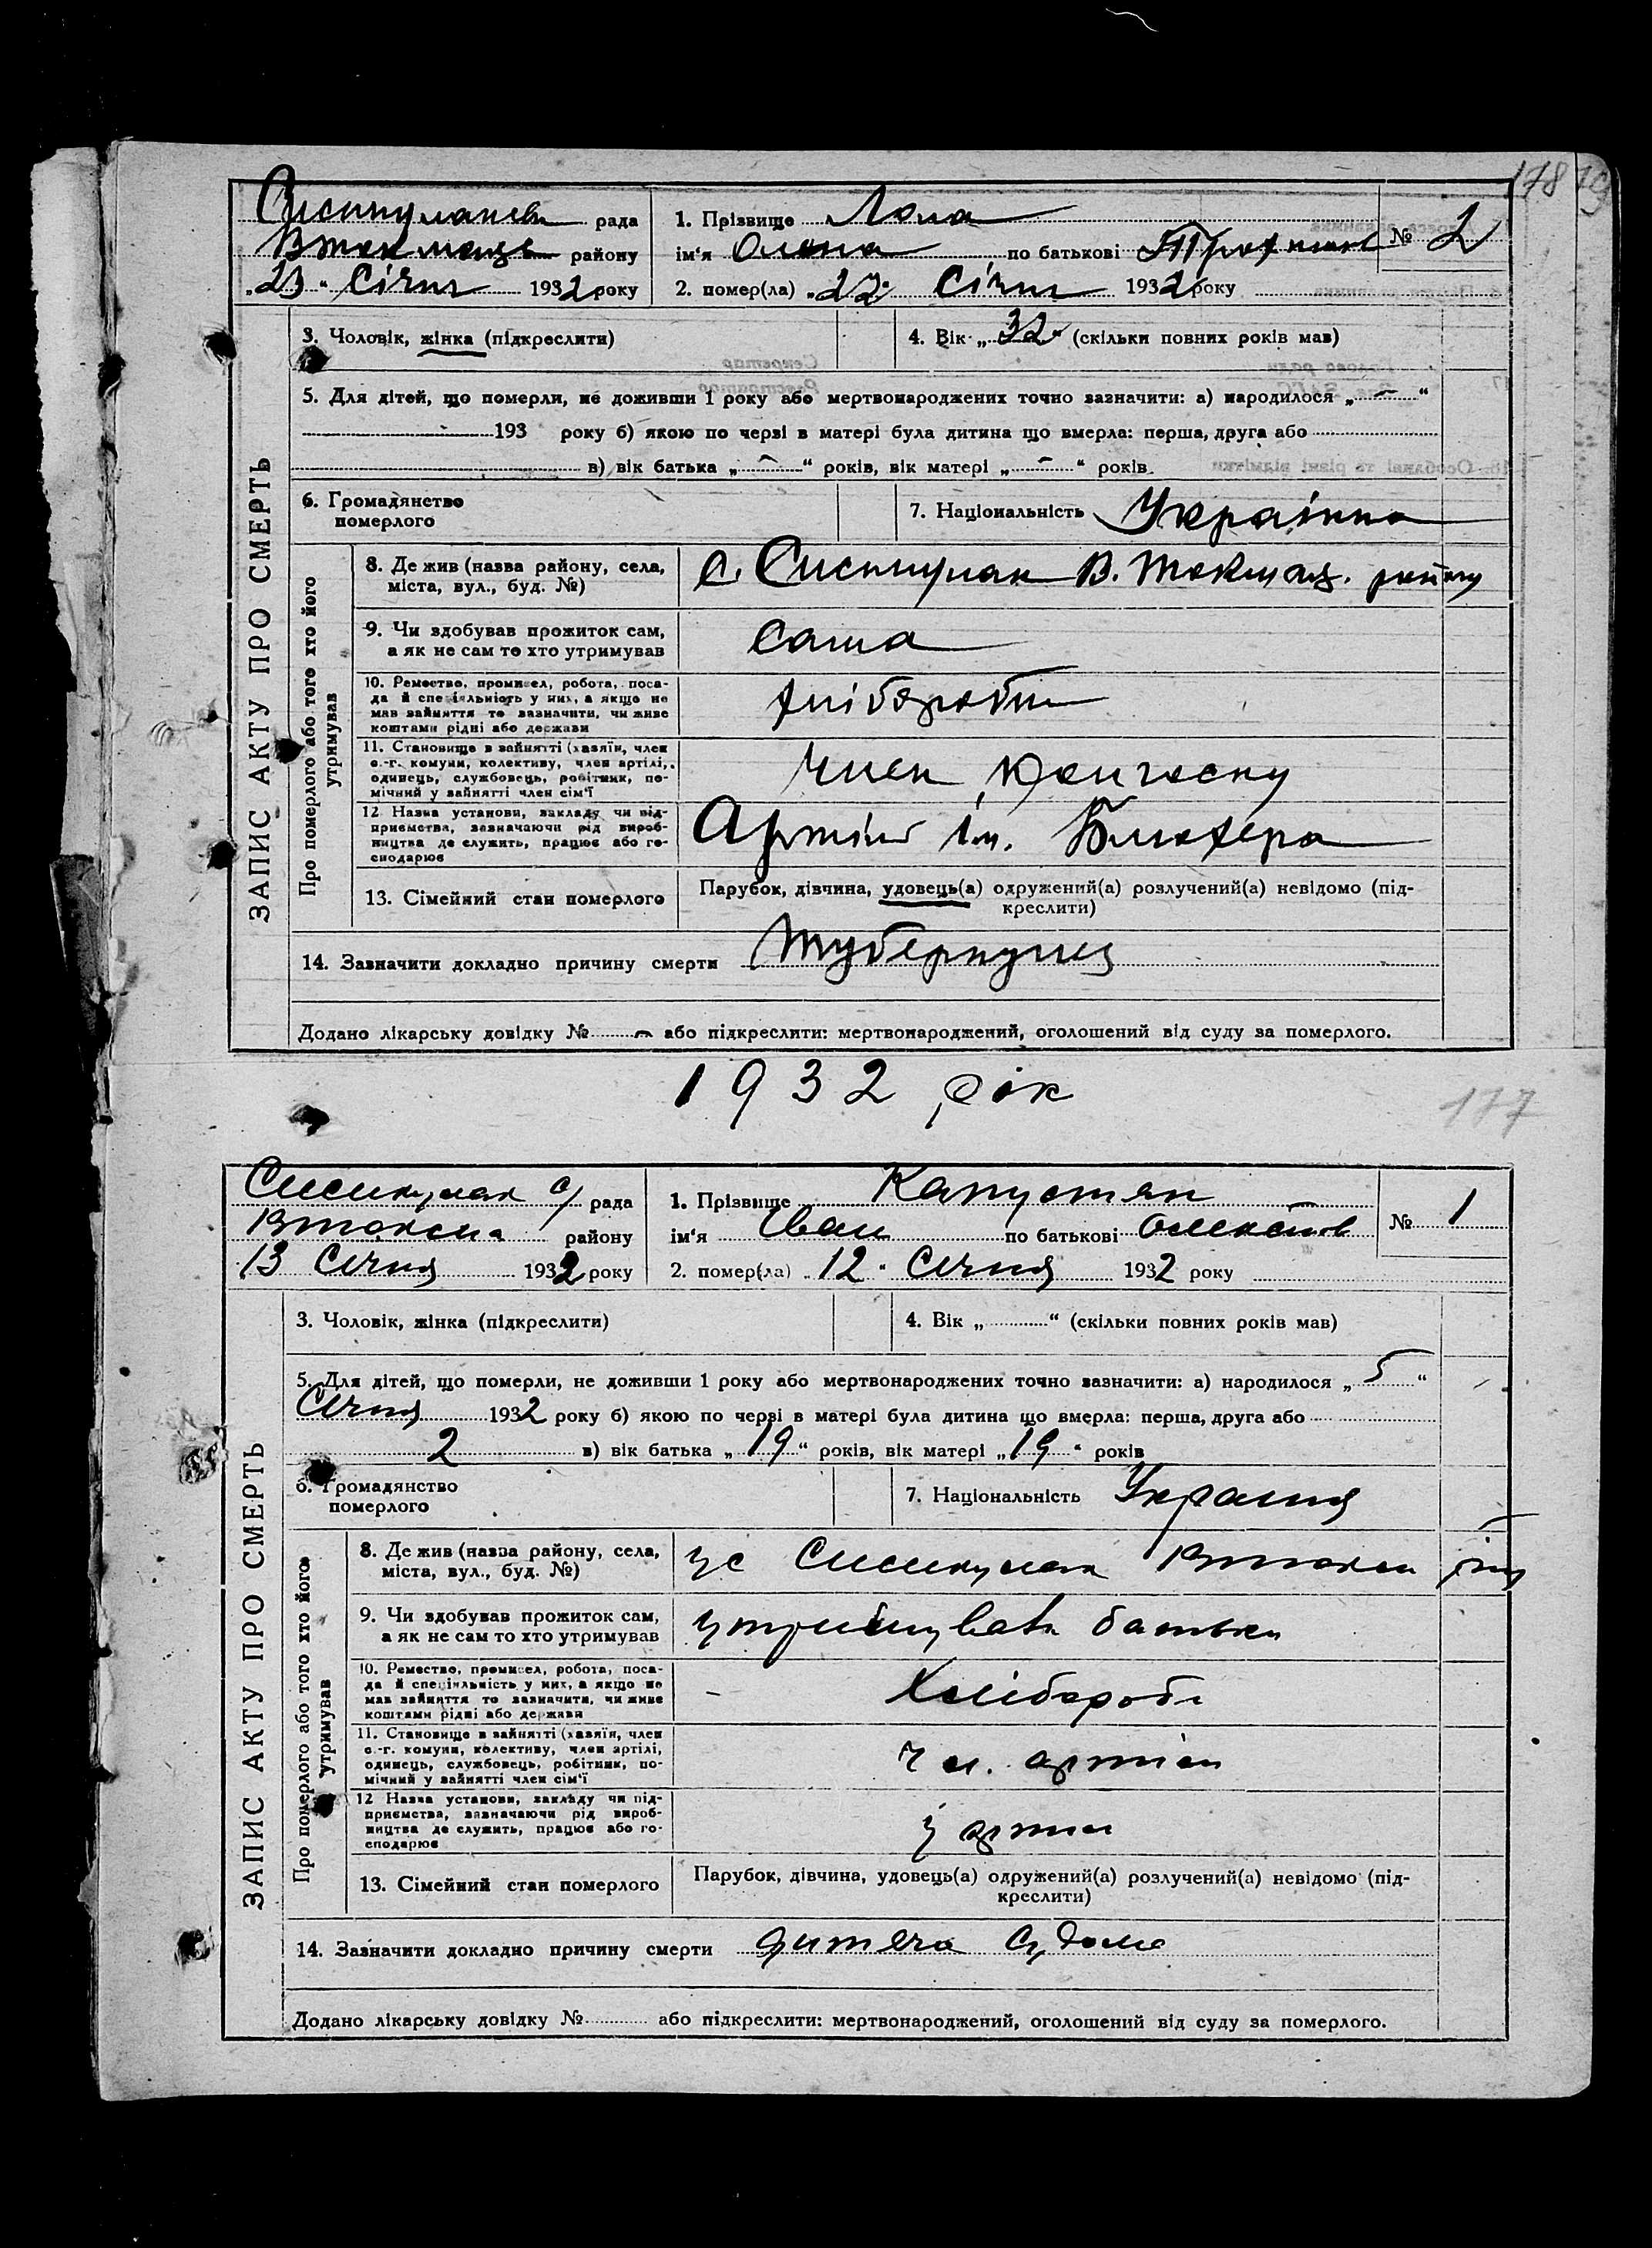 178
рада
району
23 Січня 1932 року
1. Прізвище Лола
ім'я Олена по батькові Трохимів
№ 2
2. помер(ла) „22" Січня 1932 року
ЗАПИС АКТУ ПРО СМЕРТЬ
3. Чоловік, жінка (підкреслити)
4. Вік „32" (скільки повних років мав)
5. Для дітей, що померли, не доживши 1 року або мертвонароджених точно зазначити: а) народилося „ - "
193 року б) якою по черзі в матері була дитина що вмерла: перша, друга або
в) вік батька „ - " років, вік матері „ - " років
6. Громадянство
померлого
7. Національність Українка
Про померлого або того хто його
утримував
8. Де жив (назва району, села,
міста, вул., буд. №)
9. Чи здобував прожиток сам,
а як не сам то хто утримував
сама
10. Ремество, промисел, робота, поса-
да й спеціяльність у них, а якщо не
мав зайняття то зазначити, чи живе
коштами рідні або держави
хліборобка
11. Становище в зайнятті (хазяїн, член
с.-г. комуни, колективу, член артілі,
одинець, службовець, робітник, по-
мічний у зайнятті член сім'ї
Член колгоспу
12 Назва установи, закладу чи під-
приємства, зазначаючи рід вироб-
ництва де служить, працює або го-
сподарює
Артіль ім. Блюхера
13. Сімейний стан померлого
Парубок, дівчина, удовець(а) одружений(а) розлучений(а) невідомо (під-
креслити)
14. Зазначити докладно причину смерти Туберкульоз
Додано лікарську довідку № - або підкреслити: мертвонароджений, оголошений від суду за померлого.
1932 рік
177
рада
району
13 Січня 1932 року
1. Прізвище Капустян
ім'я Іван по батькові
№ 1
2. помер(ла) „12" Січня 1932 року
ЗАПИС АКТУ ПРО СМЕРТЬ
3. Чоловік, жінка (підкреслити)
4. Вік „ " (скільки повних років мав)
5. Для дітей, що померли, не доживши 1 року або мертвонароджених точно зазначити: а) народилося „5"
Січня 1932 року б) якою по черзі в матері була дитина що вмерла: перша, друга або
2 в) вік батька „19" років, вік матері „19" років
6. Громадянство
померлого
7. Національність
Про померлого або того хто його
утримував
8. Де жив (назва району, села,
міста, вул., буд. №)
9. Чи здобував прожиток сам,
а як не сам то хто утримував
батьки
10. Ремество, промисел, робота, поса-
да й спеціяльність у них, а якщо не
мав зайняття то зазначити, чи живе
коштами рідні або держави
Хлібороби
11. Становище в зайнятті (хазяїн, член
с.-г. комуни, колективу, член артілі,
одинець, службовець, робітник, по-
мічний у зайнятті член сім'ї
чл. артіли
12 Назва установи, закладу чи під-
приємства, зазначаючи рід вироб-
ництва де служить, працює або го-
сподарює
У артили
13. Сімейний стан померлого
Парубок, дівчина, удовець(а) одружений(а) розлучений(а) невідомо (під-
креслити)
14. Зазначити докладно причину смерти дитяча судома
Додано лікарську довідку № або підкреслити: мертвонароджений, оголошений від суду за померлого.